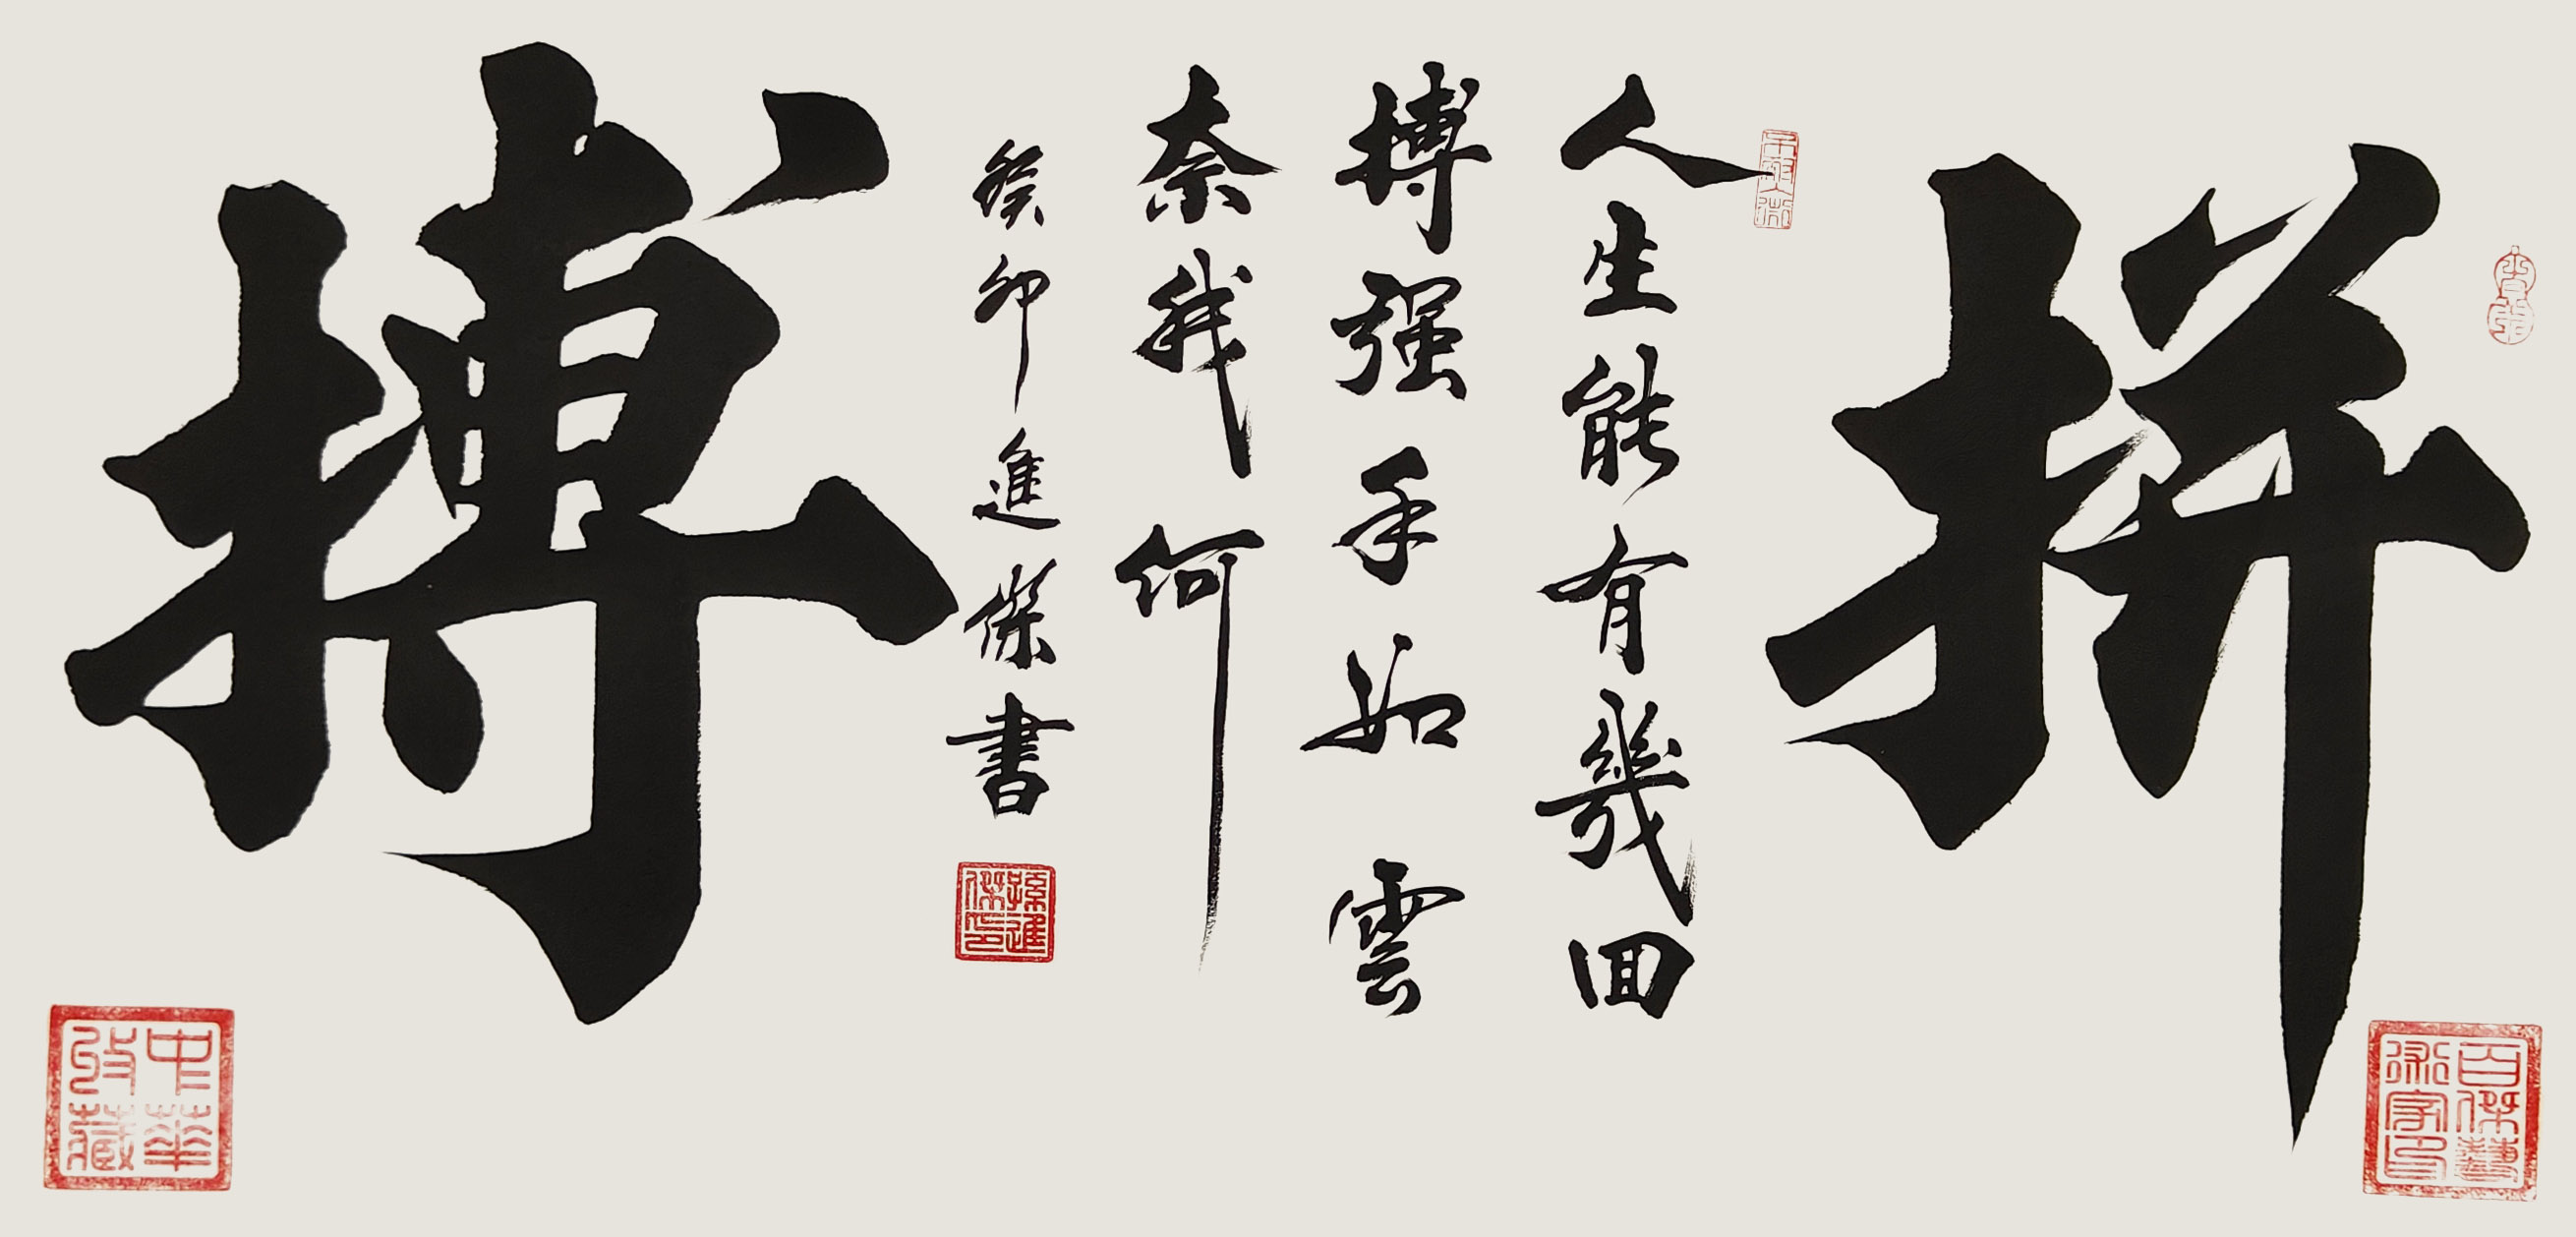 拼
人生能有幾回
搏强手如雲
奈我何
癸卯進傑書
孫進傑印
搏
百傑藝術家印
中華收藏